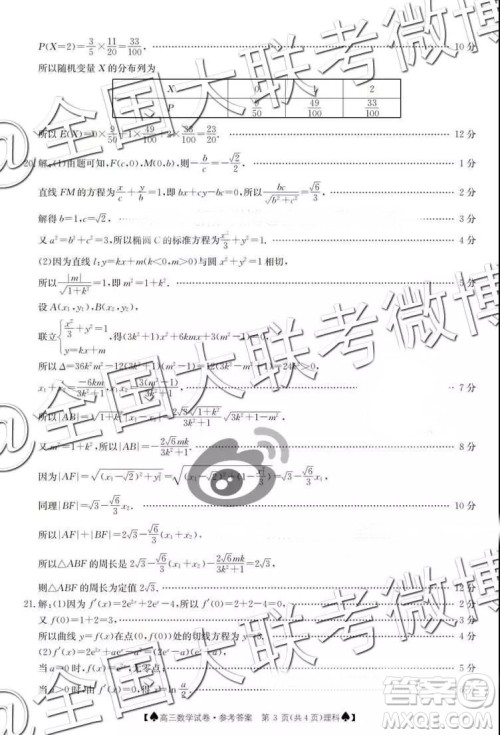 P(X=2)=3/5×11/20=33/100. 10分
所以随机变量 X 的分布列为
X 0 1 2
P 9/50 49/100 33/100
所以 E(X)=0×9/50+1×49/100+2×33/100=23/20. 12分
20.解:(1)由题可知,F(c,0),M(0,b),则-b/c=-√2/2. 1分
直线 FM 的方程为x/c+y/b=1,即 bx+cy-bc=0,所以bc/√(b²+c²)=√6/3. 2分
解得 b=1,c=√2, 3分
又 a²=b²+c²=3,所以椭圆 C 的标准方程为x²/3+y²=1. 4分
(2)因为直线 l:y=kx+m(k<0,m>0)与圆 x²+y²=1 相切,
所以|m|/√(1+k²)=1,即 m²=1+k². 5分
设 A(x₁,y₁),B(x₂,y₂),
联立{x²/3+y²=1, y=kx+m, 得(3k²+1)x²+6kmx+3(m²-1)=0,
所以 Δ=36k²m²-12(3k²+1)(m²-1)=12(3k²-m²+1)=24k²>0,
x₁+x₂=-6km/(3k²+1), x₁x₂=3(m²-1)/(3k²+1), 7分
所以|AB|=√(1+k²)|x₁-x₂|=
又 m²=1+k²,所以|AB|=-2√6mk/(3k²+1). 8分
因为|AF|=√((x₁-√2)²+y₁²)=√((x₁-√2)²+(1-x₁²/3))=√3-√6/3x₁,
同理|BF|=√3-√6/3x₂. 10分
所以|AF|+|BF|=2√3-√6/3(x₁+x₂),
所以△ABF 的周长是 2√3-√6/3(x₁+x₂)-2√6mk/(3k²+1)=2√3,
则△ABF 的周长为定值 2√3. 12分
21.解:(1)因为 f′(x)=2e²ˣ+2eˣ-4,所以 f′(0)=2+2-4=0, 1分
又 f(0)=1+2=3, 2分
所以曲线 y=f(x)在点(0,f(0))处的切线方程为 y=3. 4分
当 a>0 时,
♠高三数学试卷·参考答案 第 3 页(共 4 页)理科♠
@全国大联考微博
@全国大联考微博